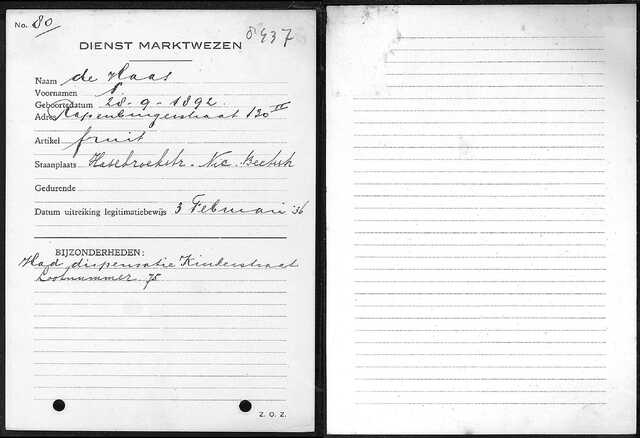 No. 80
8437
DIENST MARKTWEZEN
Naam de Haas
Voornamen S.
Geboortedatum 28-9-1892.
Adres Rapenburgerstraat 130 II
Artikel fruit
Staanplaats Hasebroekstr. Nic. Beetsstr
Gedurende
Datum uitreiking legitimatiebewijs 3 Februari '36
BIJZONDERHEDEN:
Had dispensatie Kinderstraat
Lootnummer 75
Z. O. Z.